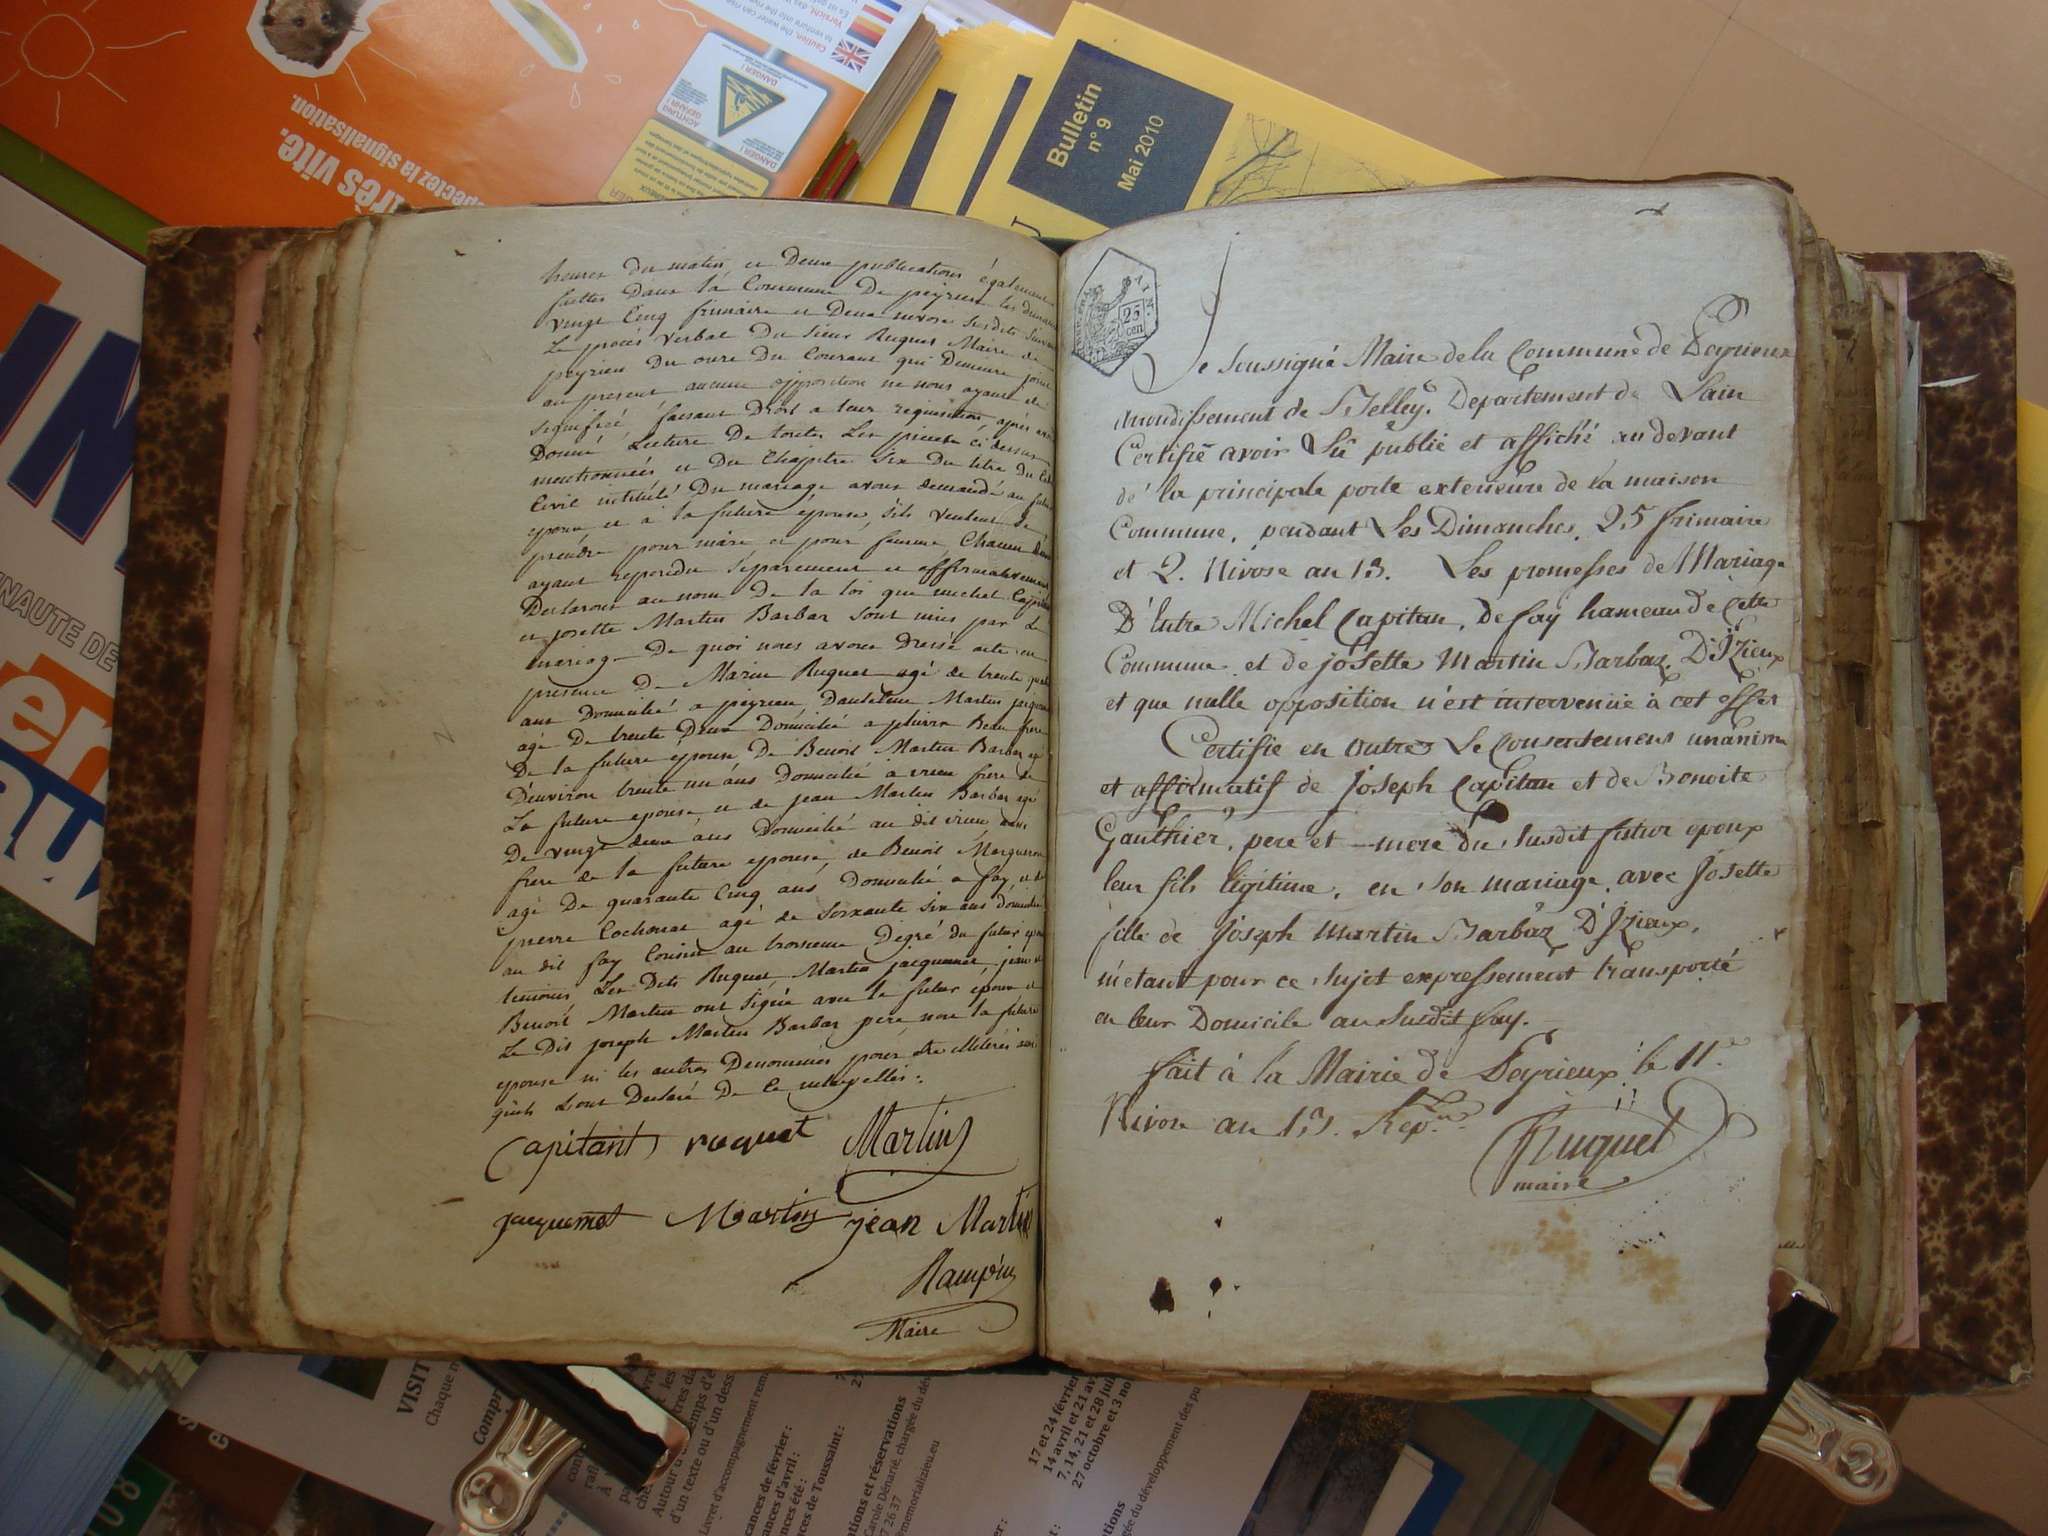 très vite.
pectez la signalisation.
Caution, the water can rise
to venture into the river
Versicht, das
Es ist
DANGER !
ACHTUNG
GEFAHR !
DANGER !
Bulletin
n° 9
Mai 2010
IN
NAUTE DE
er
heures du matin et Deux publications également
faittes Dans la Commune De peyrieu les dimanches
vingt Cinq frimaire et Deux nivose susdits suivant
Le procès verbal Du sieur Ruquet Maire de
peyrieu Du onze Du Courant qui Demeure joint
au présent, aucune opposition ne nous ayant été
signifiée, faisant Droit a leur requisition, après avoir
Donné Lecture De toutes Les pieces ci dessus
mentionnées et Du Chapitre six Du titre Du Code
Civil intitulé Du mariage avons demandé au futur
epoux et à la future épouse, s'ils veulent se
prendre pour mari et pour femme Chacun d'eux
ayant repondu séparement et affirmativement
Declarons au nom De la loi que michel Capitan
et josette Martin Barbaz sont unis par Le
mariage De quoi nous avons Dressé acte en
presence De Marin Ruquet agé de trente quatre
ans Domicilié a peyrieu, Dantelme Martin jacquemet
agé De trente Deux Domicilié a Beau frere
De la future épouse De Benoit Martin Barbaz agé
D'environ trente un ans Domicilié à frere de
La future epouse, et de jean Martin Barbaz agé
De vingt deux ans Domicilié au dit aussi
frere de la future epouse, de Benoit
agé De quarante Cinq ans Domicilié a fay, et de
pierre Cochonat agé de soixante six ans domicilié
au dit fay Cousin au troisieme Degré du futur epoux
temoins, Les Dits Ruquet, Martin jacquemet, jean et
Benoit Martin ont signé avec le futur epoux et
Le Dit joseph Martin Barbaz pere non la future
epouse ni les autres Denommés pour etre illiterés ainsi
qu'ils L'ont Declaré De Ce interpellés :.
Capitant ruquet Martin
jacquemet Martin jean Martin
Rampin
Maire
25
cen
Je soussigné Maire de la Commune de Peyrieux
arrondissement de Belley, Departement de Lain
Certifie avoir Lû publié et affiché au devant
de la principale porte exterieure de la maison
Commune, pendant Les Dimanches, 25 frimaire
et 2. Nivose an 13. Les promesses de Mariage
D'Entre Michel Capitan, de fay hameau de Cette
Commune et de josette Martin Barbaz, D'Izieux
et que nulle opposition n'est intervenüe à cet effet
Certifie en outre Le Consentement unanime
et affirmatif de Joseph Capitan et de Benoite
Gauthier, pere et mere du susdit futur epoux
leur fils légitime, en son mariage, avec Josette
fille de Joseph Martin Barbaz D'Izieux,
m'etant pour ce sujet expressement transporté
en leur Domicile au Susdit fay.
fait à la Mairie de Peyrieux le 11e
Nivose an 13. Rep.
Ruquet
maire
VISIT
Chaque
Compr
Autour d'
d'un texte ou d'un dess
Livret d'accompagnement
cances de février :
nces d'avril :
nces été :
nces de Toussaint :
tions et réservations
Carole Dénarié, chargée du dév
7 26 37
ememorializieu.eu
17 et 24 février
14 avril et 21 av
7, 14, 21 et 28 jui
27 octobre et 3 no
gée du développement des pu